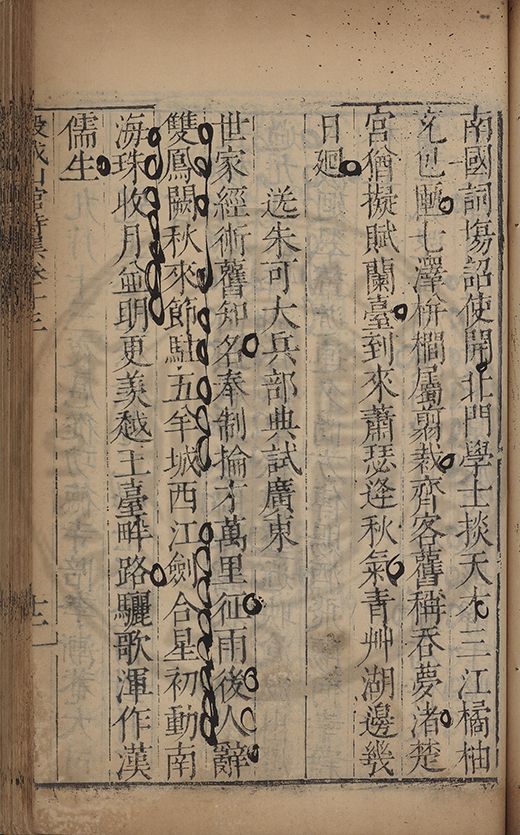 南國詞塲詔使開北門學士掞天才三江橘柚
充包匭七澤栟櫚屬翦裁齊客舊稱吞夢渚楚
宮僧擬賦蘭臺到來蕭瑟逢秋氣青艸湖邊幾
日廻
送朱可大兵部典試廣東
世家經術舊知名奉制掄才萬里征雨後人辭
雙鳳闕秋來節駐五羊城西江劍合星初動南
海珠收月並明更羡越王臺畔路驪歌渾作漢
儒生
穀城山館詩集卷十三